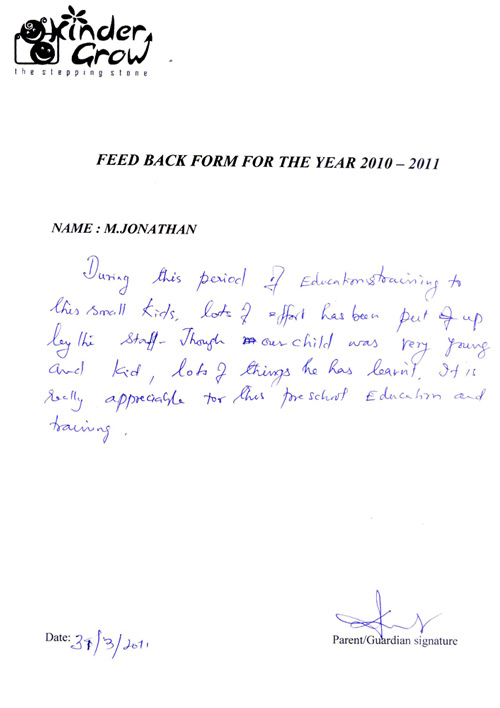 Kinder
Grow
the stepping stone
FEED BACK FORM FOR THE YEAR 2010 – 2011
NAME : M.JONATHAN
During this period of Education & training to
this small kids, lots of effort has been put up
by the staff. Though our child was very young
and kid, lots of things he has learnt. It is
really appreciable for this preschool Education and
training.
Date: 31/3/2011
Parent/Guardian signature